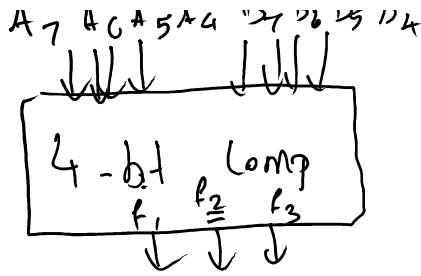 A7 A6 A5 A4 B7 B6 B5 B4
4-bit Comp
f1 f2 f3